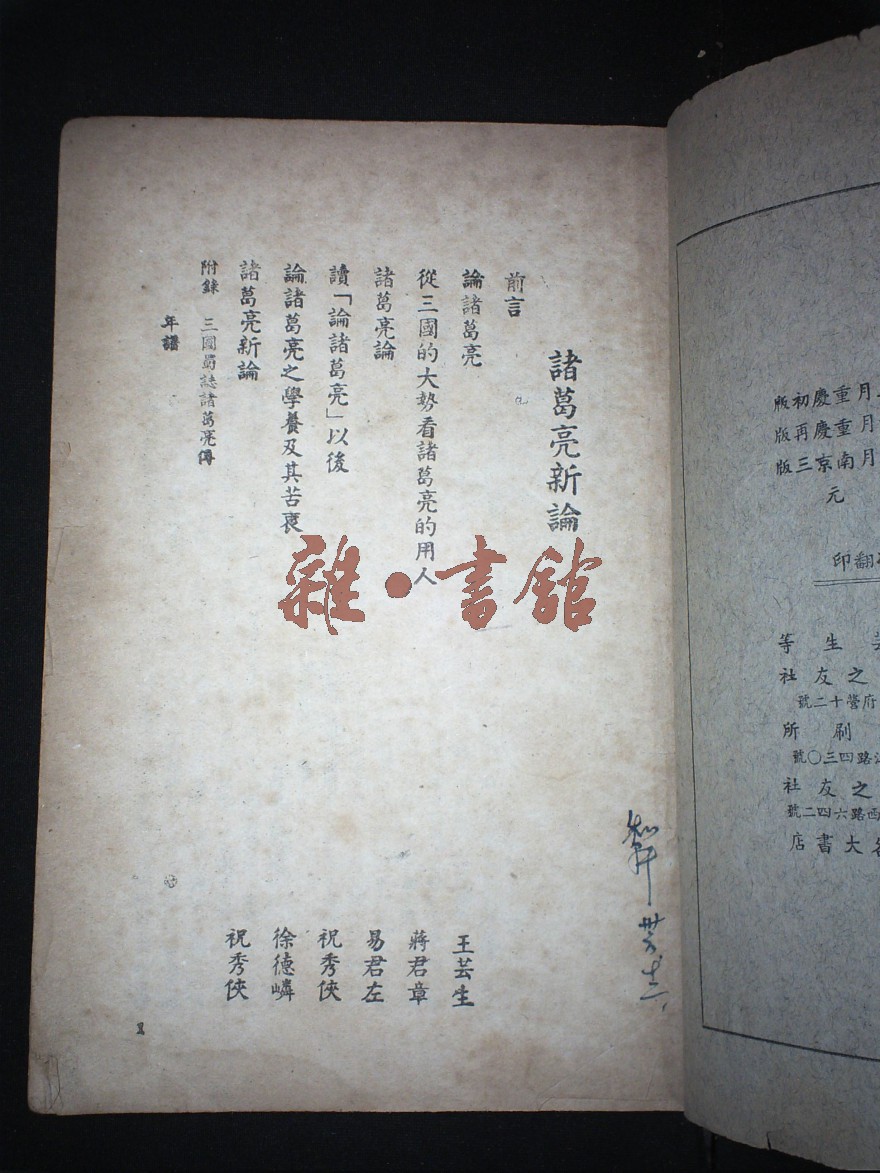 諸葛亮新論
前言
論諸葛亮 王芸生
從三國的大勢看諸葛亮的用人 蔣君章
諸葛亮論 易君左
讀「論諸葛亮」以後 祝秀俠
論諸葛亮之學養及其苦衷 徐德嶙
諸葛亮新論 祝秀俠
附錄 三國蜀誌諸葛亮傳
年譜
1
雜·書館
月重慶初版
月重慶再版
月南京三版
元
翻印
生等
之友社
府營十二號
刷所
路四三〇號
之友社
西路六四二號
各大書店